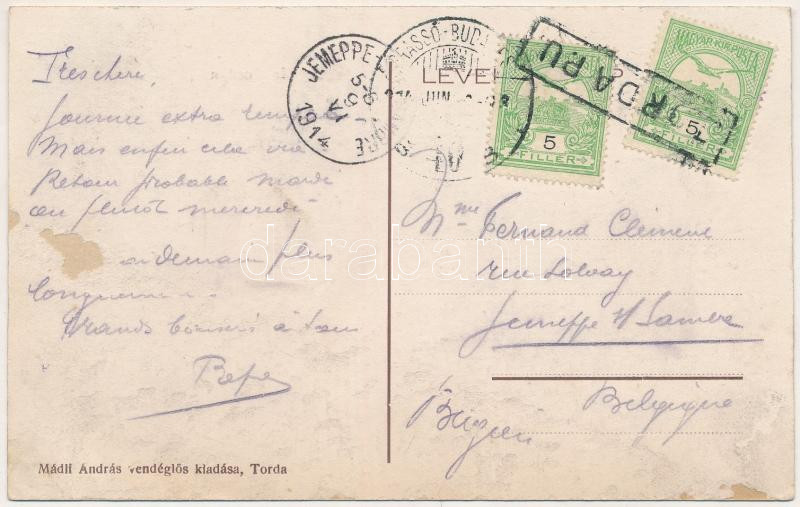 Journée extra remplie
Mais enfin cela va
Retour probable mardi
ou plutôt mercredi
à demain plus
longuement.
Grands baisers à tous
Mádli András vendéglős kiadása, Torda
JEMEPPE
1914
BRASSÓ-BUD
JUN
LEVEL
TORDA
MAGYAR KIR. POSTA
5
FILLÉR
MAGYAR KIR. POSTA
5
FILLÉR
Mme Fernand Clément
rue Solvay
Jemeppe s/ Sambre
Belgique
darabanth